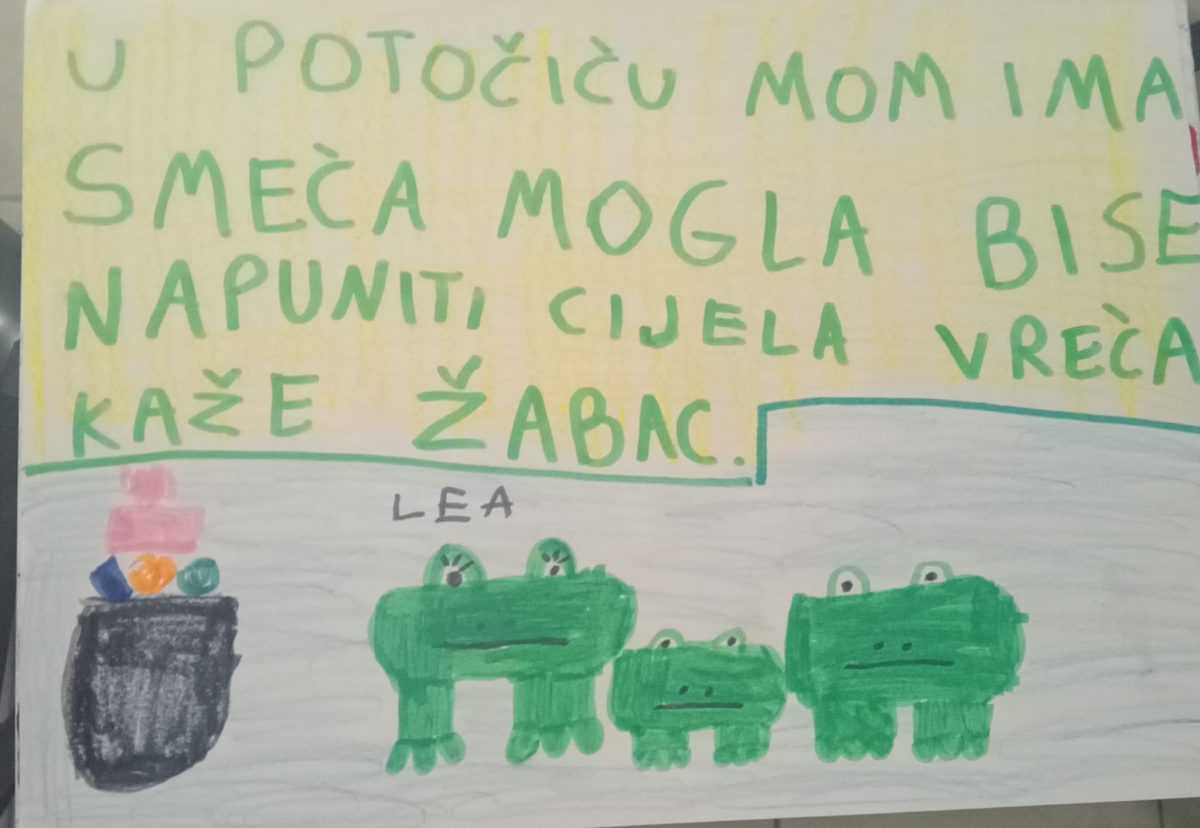 U POTOČIČU MOM IMA
SMEČA MOGLA BISE
NAPUNITI CIJELA VREČA
KAŽE ŽABAC.
LEA